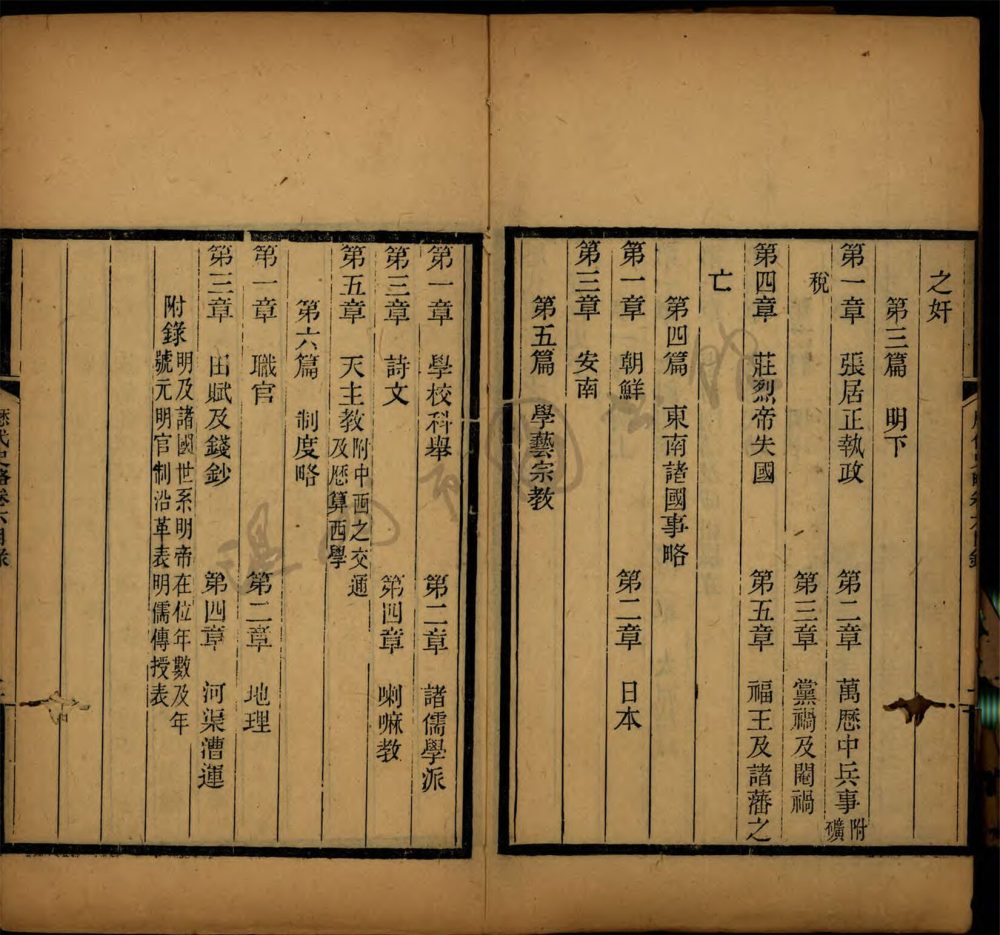 之奸
第三篇　明下
第一章　張居正執政　第二章　萬厯中兵事附礦
稅　第三章　黨禍及閹禍
第四章　莊烈帝失國　第五章　福王及諸藩之
亡
第四篇　東南諸國事略
第一章　朝鮮　第二章　日本
第三章　安南
第五篇　學藝宗教
第一章　學校科舉　第二章　諸儒學派
第三章　詩文　第四章　喇嘛教
第五章　天主教附中西之交通
及厯算西學
第六篇　制度略
第一章　職官　第二章　地理
第三章　田賦及錢鈔　第四章　河渠漕運
附錄明及諸國世系明帝在位年數及年
號元明官制沿革表明儒傳授表
歷代史略卷六目錄